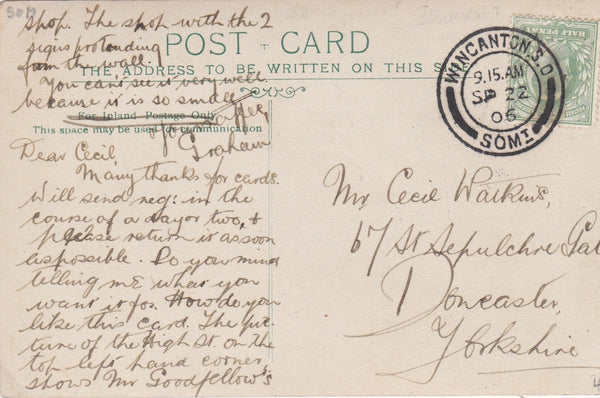 Shop. The shop with the 2
signs protouding
from the wall.
You cant see it very well
because it is so small
POST CARD
THE ADDRESS TO BE WRITTEN ON THIS
For Inland Postage Only
This space may be used for communication
Graham
Dear Cecil
Many thanks for cards.
Will send neg: in the
course of a day or two, &
please return it as soon
as possible. Do you mind
telling me what you
want it for. How do you
like this card. The pic-
ture of the High St. on the
top left hand corner,
shows Mr Goodfellow's
WINCANTON. S.O
9.15. AM
SP 22
06
SOMT
HALF PENNY
Mr Cecil Watkins,
67 St Sepulchre Gat
Doncaster,
Yorkshire